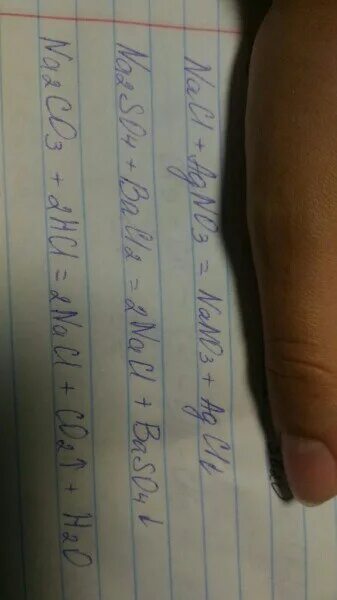 NaCl + AgNO3 = NaNO3 + AgCl↓
Na2SO4 + BaCl2 = 2NaCl + BaSO4↓
Na2CO3 + 2HCl = 2NaCl + CO2↑ + H2O